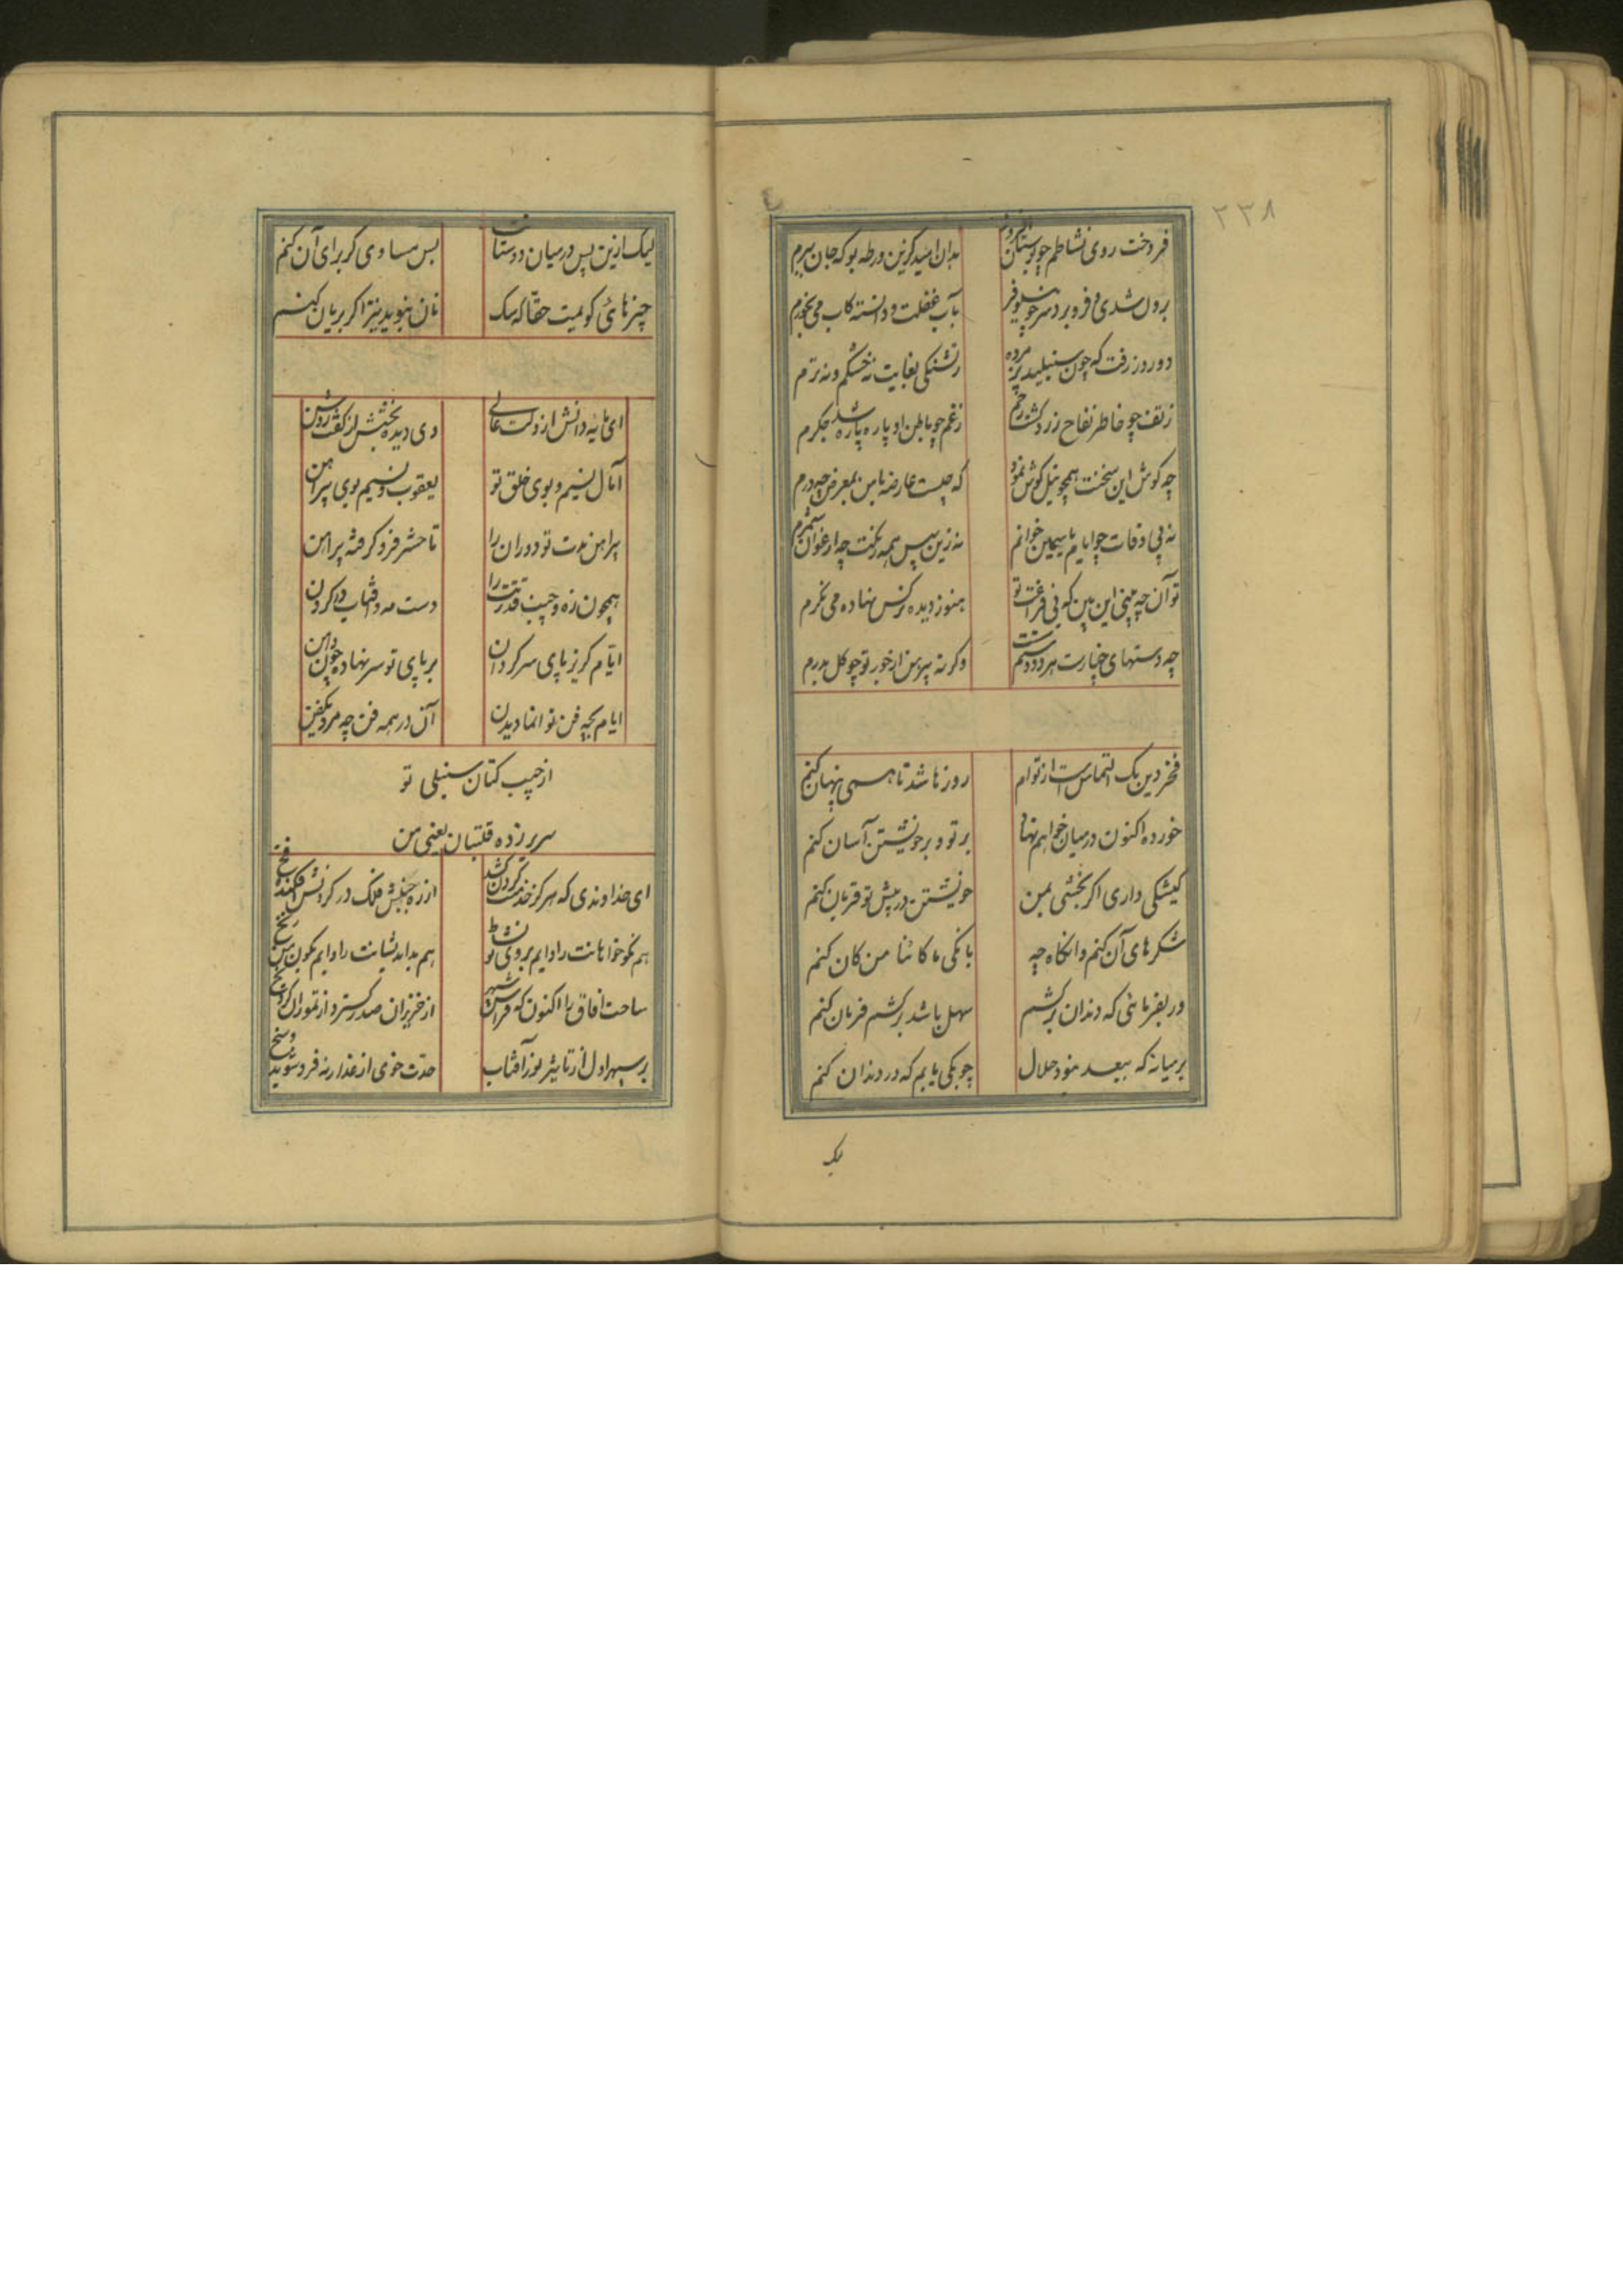 ۲۳۸
فروخت روی نشاطم چو بوستان افروز
بدان امید کزین ورطه بو که جان ببرم
برول شدی و فرو برد سر چو نیلوفر
بآب غفلت و دانسته کاب می‌نخورم
دو روز رفت که چون سنبلید پژمرده
ز تشنگی بغایت نه خشکم و نه ترم
ز تف چو خاطر تفاح زرد گشت رخم
ز غم چو باطن او پاره پاره شد جگرم
چه گوش این سخنت همچو نیل گوش نمود
که چیست عارضه یا من بمعرض چه درم
نه زین سپس همه نکنت چه ارغوان شمرم
تو آن چه بینی این بین که بی فراغت تو
هنوز دیده نرگس نهاده می نگرم
چه دستهای چنارت هر دو دستم
وگرنه پیرهن از خور تو چو گل بدرم
فخر دین یک التماس است از توام
روزها شد تا همی پنهان کنم
خورده اکنون در میان خواهم نهاد
بر تو و بر خویشتن آسان کنم
کیشکی داری اگر بخشی بمن
خویشتن در پیش تو قربان کنم
شکرهای آن کنم وانگاه چه
بانکی ما کاثنا من کان کنم
ور بفرمائی که دندان برکشم
سهل باشد برکشم فرمان کنم
بر میانه که بیعد منو دحلال
چوبکی یابم که در دندان کنم
لیک
لیک ازین پس در میان دوستانت
بس مساوی کز برای آن کنم
چیزهائی گویمت حقا که سگ
نان نبوید نیز اگر بریان کنم
ای پایه دانش از دلت عالی
وی دیده بخشش از کفت روشن
آمال نسیم و بوی خلق تو
یعقوب و نسیم بوی پیراهن
پیراهن مدت تو دوران را
تا حشر فرو گرفته پیراهن
همچون زه و جیب قدرتت را
دست مه و آفتاب در گردن
ایام گریز پای سرگردان
بر پای تو سر نهاده چون دامن
ایام بچه فن تو انما دیدن
آن در همه فن چه مرد یکفن
از جیب کتان سنبلی تو
سر بر زده قلتبان یعنی من
ای خداوندی که هر کز خدمتت گردن کشد
از ره جنبش فلک در گردنش افکند فخ
هم نکو خواهانت را دایم بروی تو نشاط
ساحت آفاق را اکنون که فراش سپهر
از حزیران صدر گسترد از تموز آن کرد نخ
بر سپهر اول از تاثیر نور آفتاب
حدت خوی از عذار مه فرو شوید وسخ